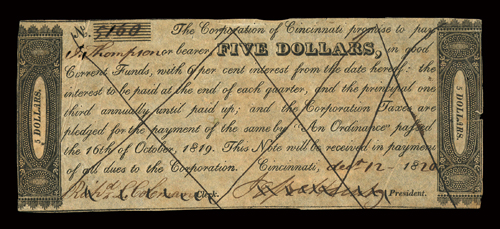 No. 5160 The Corporation of Cincinnati promise to pay
J. Thompson or bearer FIVE DOLLARS, in good
Current Funds, with 6 per cent interest from the date hereof: the
interest to be paid at the end of each quarter, and the principal one
third annually until paid up; and the Corporation Taxes are
pledged for the payment of the same by "An Ordinance" passed
the 16th of October, 1819. This Note will be received in payment
of all dues to the Corporation. Cincinnati, Dec 12 - 1820
Clerk. President.
5 DOLLARS.
5 DOLLARS.